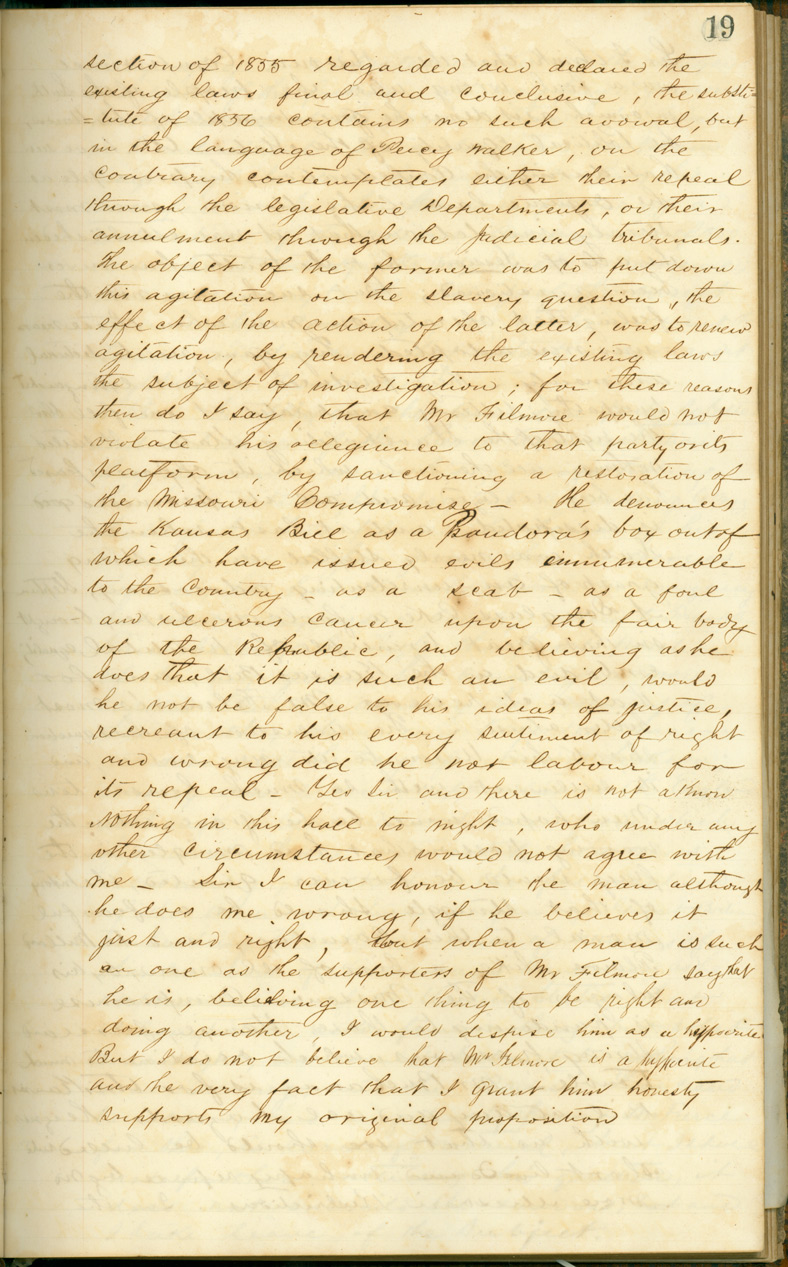 19
section of 1855 regarded and declared the
existing laws final and conclusive, the substi=
=tute of 1856 contains no such avowal, but
in the language of Percy Walker, on the
contrary contemplates either their repeal
through the legislative Departments, or their
annulment through the judicial tribunals.
The object of the former was to put down
this agitation on the slavery question, the
effect of the action of the latter, was to renew
agitation, by rendering the existing laws
the subject of investigation; for these reasons
then do I say, that Mr Filmore would not
violate his allegience to that party or its
platform, by sanctioning a restoration of
the Missouri Compromise – He denounces
the Kansas Bill as a Pandora's box out of
which have issued evils innumerable
to the Country – as a scab – as a foul
and ulcerous cancer upon the fair body
of the Republic, and believing as he
does that it is such an evil, would
he not be false to his ideas of justice,
recreant to his every sentiment of right
and wrong did he not labour for
its repeal – Yes Sir and there is not a Know
Nothing in this hall to night, who under any
other circumstances would not agree with
me – Sir I can honour the man although
he does me wrong, if he believes it
just and right, but when a man is such
an one as the supporters of Mr Filmore say that
he is, believing one thing to be right and
doing another, I would despise him as a hypocrite
But I do not believe that Mr Filmore is a hypocrite
and the very fact that I grant him honesty
supports my original proposition